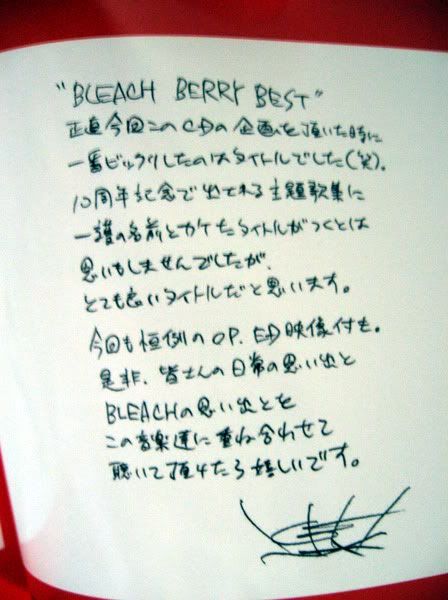 "BLEACH BERRY BEST"
正直今回このCDの企画を頂いた時に
一番ビックリしたのはタイトルでした(笑)。
10周年記念で出される主題歌集に
一護の名前とカケたタイトルがつくとは
思いもしませんでしたが、
とても良いタイトルだと思います。
今回も恒例のOP、ED映像付き。
是非、皆さんの日常の思い出と
BLEACHの思い出とを
この音楽達に重ね合わせて
聴いて頂けたら嬉しいです。